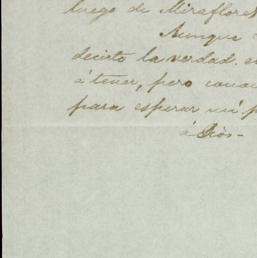 luego de Miraflores
Aunque
decirte la verdad, en
á tener, pero cuando
para esperar mi p
á Dios-